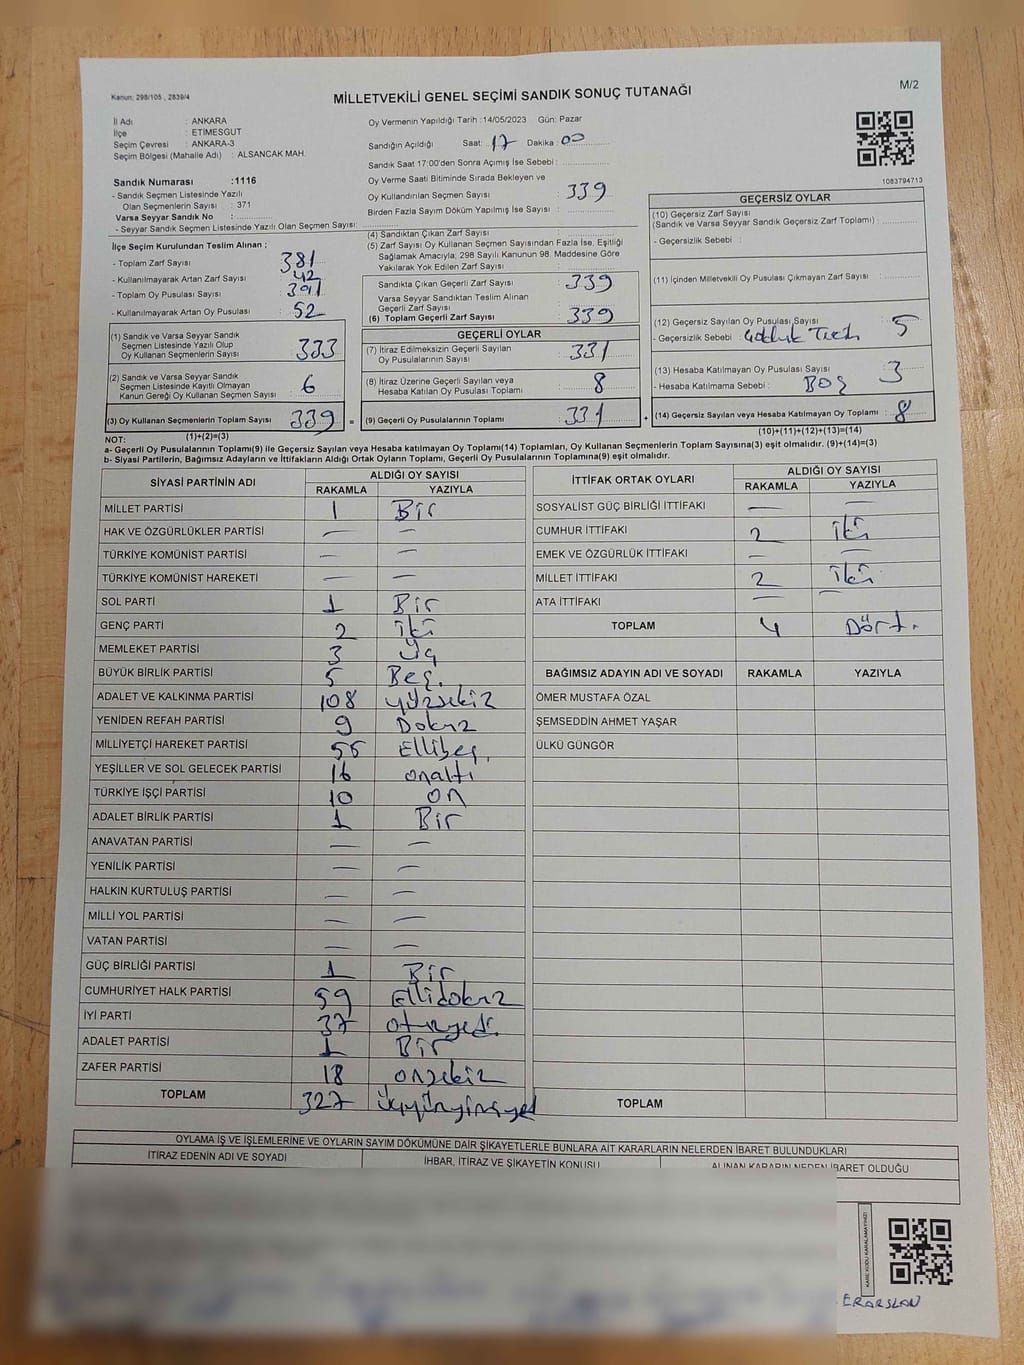 Kanun; 298/105 , 2839/4
MİLLETVEKİLİ GENEL SEÇİMİ SANDIK SONUÇ TUTANAĞI
M/2
İl Adı : ANKARA
İlçe : ETİMESGUT
Seçim Çevresi : ANKARA-3
Seçim Bölgesi (Mahalle Adı) : ALSANCAK MAH.
Oy Vermenin Yapıldığı Tarih :14/05/2023 Gün: Pazar
Sandığın Açıldığı Saat: 17 Dakika : 00
Sandık Saat 17:00'den Sonra Açımış İse Sebebi :
Oy Verme Saati Bitiminde Sırada Bekleyen ve
Oy Kullandırılan Seçmen Sayısı 339
Birden Fazla Sayım Döküm Yapılmış İse Sayısı :
1083794713
Sandık Numarası :1116
- Sandık Seçmen Listesinde Yazılı
Olan Seçmenlerin Sayısı : 371
Varsa Seyyar Sandık No :
- Seyyar Sandık Seçmen Listesinde Yazılı Olan Seçmen Sayısı:
İlçe Seçim Kurulundan Teslim Alınan ;
- Toplam Zarf Sayısı : 381
- Kullanılmayarak Artan Zarf Sayısı : 42
- Toplam Oy Pusulası Sayısı : 391
- Kullanılmayarak Artan Oy Pusulası : 52
(1) Sandık ve Varsa Seyyar Sandık
Seçmen Listesinde Yazılı Olup
Oy Kullanan Seçmenlerin Sayısı : 333
(2) Sandık ve Varsa Seyyar Sandık
Seçmen Listesinde Kayıtlı Olmayan
Kanun Gereği Oy Kullanan Seçmen Sayısı : 6
(3) Oy Kullanan Seçmenlerin Toplam Sayısı : 339 =
(1)+(2)=(3)
(4) Sandıktan Çıkan Zarf Sayısı :
(5) Zarf Sayısı Oy Kullanan Seçmen Sayısından Fazla İse, Eşitliği
Sağlamak Amacıyla; 298 Sayılı Kanunun 98. Maddesine Göre
Yakılarak Yok Edilen Zarf Sayısı :
Sandıkta Çıkan Geçerli Zarf Sayısı : 339
Varsa Seyyar Sandıktan Teslim Alınan
Geçerli Zarf Sayısı :
(6) Toplam Geçerli Zarf Sayısı : 339
GEÇERLİ OYLAR
(7) İtiraz Edilmeksizin Geçerli Sayılan
Oy Pusulalarının Sayısı : 331
(8) İtiraz Üzerine Geçerli Sayılan veya
Hesaba Katılan Oy Pusulası Toplamı : 8
(9) Geçerli Oy Pusulalarının Toplamı : 331 +
GEÇERSİZ OYLAR
(10) Geçersiz Zarf Sayısı
(Sandık ve Varsa Seyyar Sandık Geçersiz Zarf Toplamı) :
- Geçersizlik Sebebi :
(11) İçinden Milletvekili Oy Pusulası Çıkmayan Zarf Sayısı :
(12) Geçersiz Sayılan Oy Pusulası Sayısı : 5
- Geçersizlik Sebebi :
(13) Hesaba Katılmayan Oy Pusulası Sayısı : 3
- Hesaba Katılmama Sebebi : BOŞ
(14) Geçersiz Sayılan veya Hesaba Katılmayan Oy Toplamı : 8
(10)+(11)+(12)+(13)=(14)
NOT:
a- Geçerli Oy Pusulalarının Toplamı(9) ile Geçersiz Sayılan veya Hesaba katılmayan Oy Toplamı(14) Toplamları, Oy Kullanan Seçmenlerin Toplam Sayısına(3) eşit olmalıdır. (9)+(14)=(3)
b- Siyasi Partilerin, Bağımsız Adayların ve İttifakların Aldığı Ortak Oyların Toplamı, Geçerli Oy Pusulalarının Toplamına(9) eşit olmalıdır.
SİYASİ PARTİNİN ADI ALDIĞI OY SAYISI
RAKAMLA YAZIYLA
MİLLET PARTİSİ 1 Bir
HAK VE ÖZGÜRLÜKLER PARTİSİ — —
TÜRKİYE KOMÜNİST PARTİSİ — —
TÜRKİYE KOMÜNİST HAREKETİ — —
SOL PARTİ 1 Bir
GENÇ PARTİ 2 iki
MEMLEKET PARTİSİ 3 Üç
BÜYÜK BİRLİK PARTİSİ 5 Beş.
ADALET VE KALKINMA PARTİSİ 108 yüzsekiz
YENİDEN REFAH PARTİSİ 9 Dokuz
MİLLİYETÇİ HAREKET PARTİSİ 55 Ellibeş.
YEŞİLLER VE SOL GELECEK PARTİSİ 16 onaltı
TÜRKİYE İŞÇİ PARTİSİ 10 on
ADALET BİRLİK PARTİSİ 1 Bir
ANAVATAN PARTİSİ — —
YENİLİK PARTİSİ — —
HALKIN KURTULUŞ PARTİSİ — —
MİLLİ YOL PARTİSİ — —
VATAN PARTİSİ — —
GÜÇ BİRLİĞİ PARTİSİ 1 Bir
CUMHURİYET HALK PARTİSİ 59 Ellidokuz
İYİ PARTİ 37 otuzyedi
ADALET PARTİSİ 1 Bir
ZAFER PARTİSİ 18 onsekiz
TOPLAM 327 üçyüzyirmiyedi
İTTİFAK ORTAK OYLARI ALDIĞI OY SAYISI
RAKAMLA YAZIYLA
SOSYALİST GÜÇ BİRLİĞİ İTTİFAKI — —
CUMHUR İTTİFAKI 2 iki
EMEK VE ÖZGÜRLÜK İTTİFAKI — —
MİLLET İTTİFAKI 2 iki
ATA İTTİFAKI — —
TOPLAM 4 Dört.
BAĞIMSIZ ADAYIN ADI VE SOYADI RAKAMLA YAZIYLA
ÖMER MUSTAFA ÖZAL
ŞEMSEDDİN AHMET YAŞAR
ÜLKÜ GÜNGÖR
TOPLAM
OYLAMA İŞ VE İŞLEMLERİNE VE OYLARIN SAYIM DÖKÜMÜNE DAİR ŞİKAYETLERLE BUNLARA AİT KARARLARIN NELERDEN İBARET BULUNDUKLARI
İTİRAZ EDENİN ADI VE SOYADI İHBAR, İTİRAZ VE ŞİKAYETİN KONUSU ALINAN KARARIN NEDEN İBARET OLDUĞU
KARE KODU KARALAMAYINIZ!
ERARSLAN